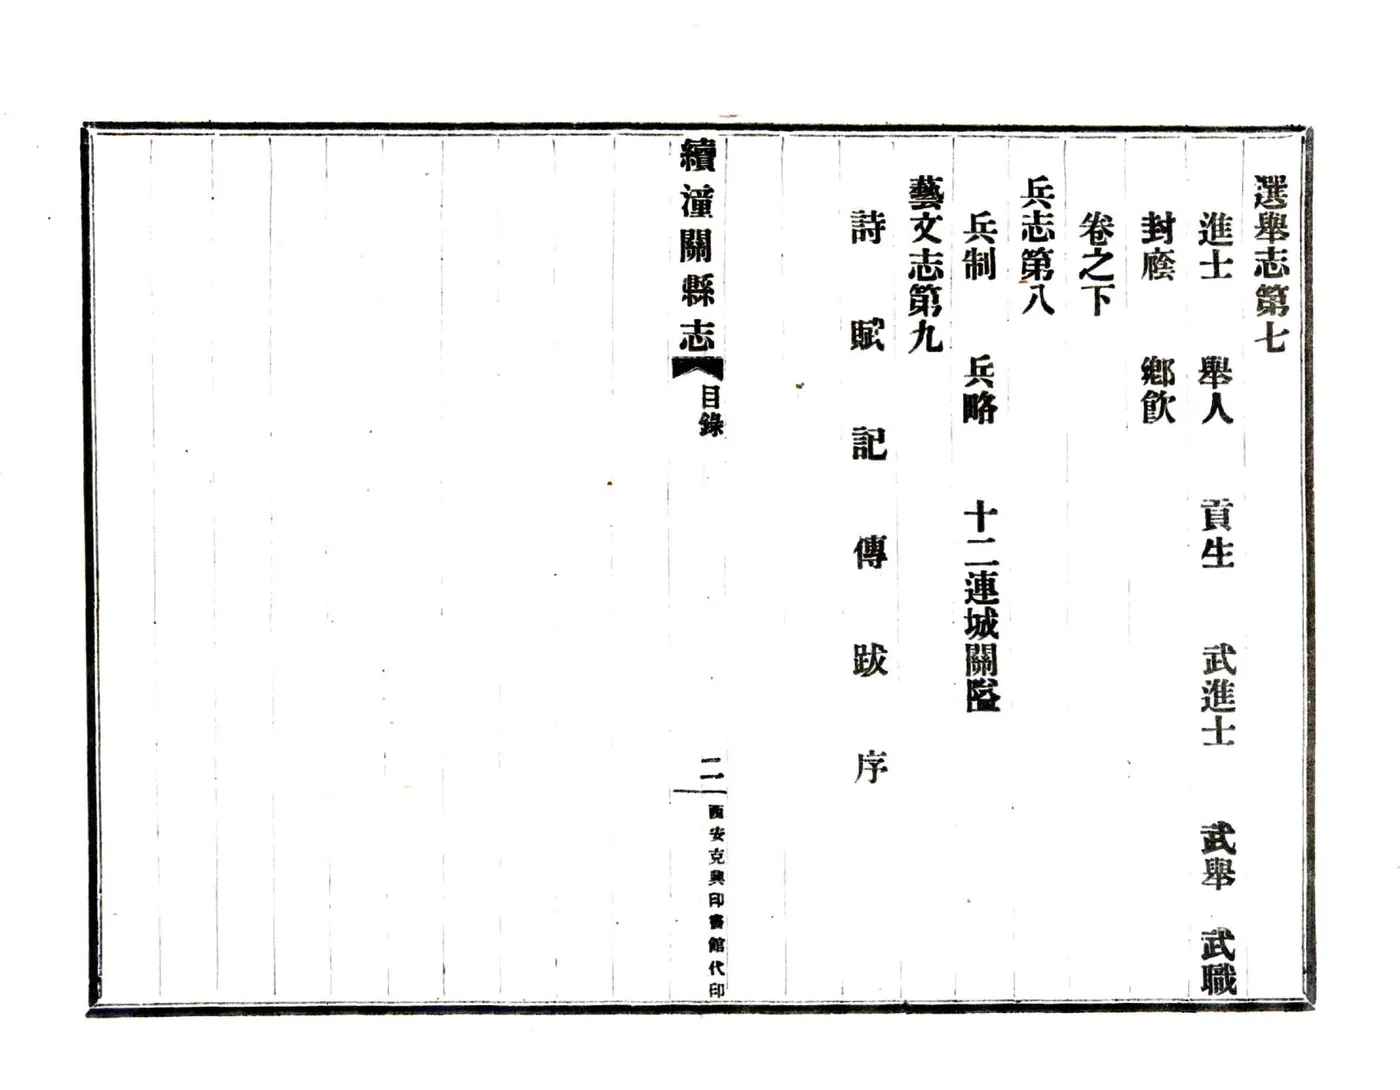 選舉志第七
進士 舉人 貢生 武進士 武舉 武職
封廕 鄉飲
卷之下
兵志第八
兵制 兵略 十二連城關隘
藝文志第九
詩 賦 記 傳 跋 序
續潼關縣志 目錄 二 西安克興印書館代印